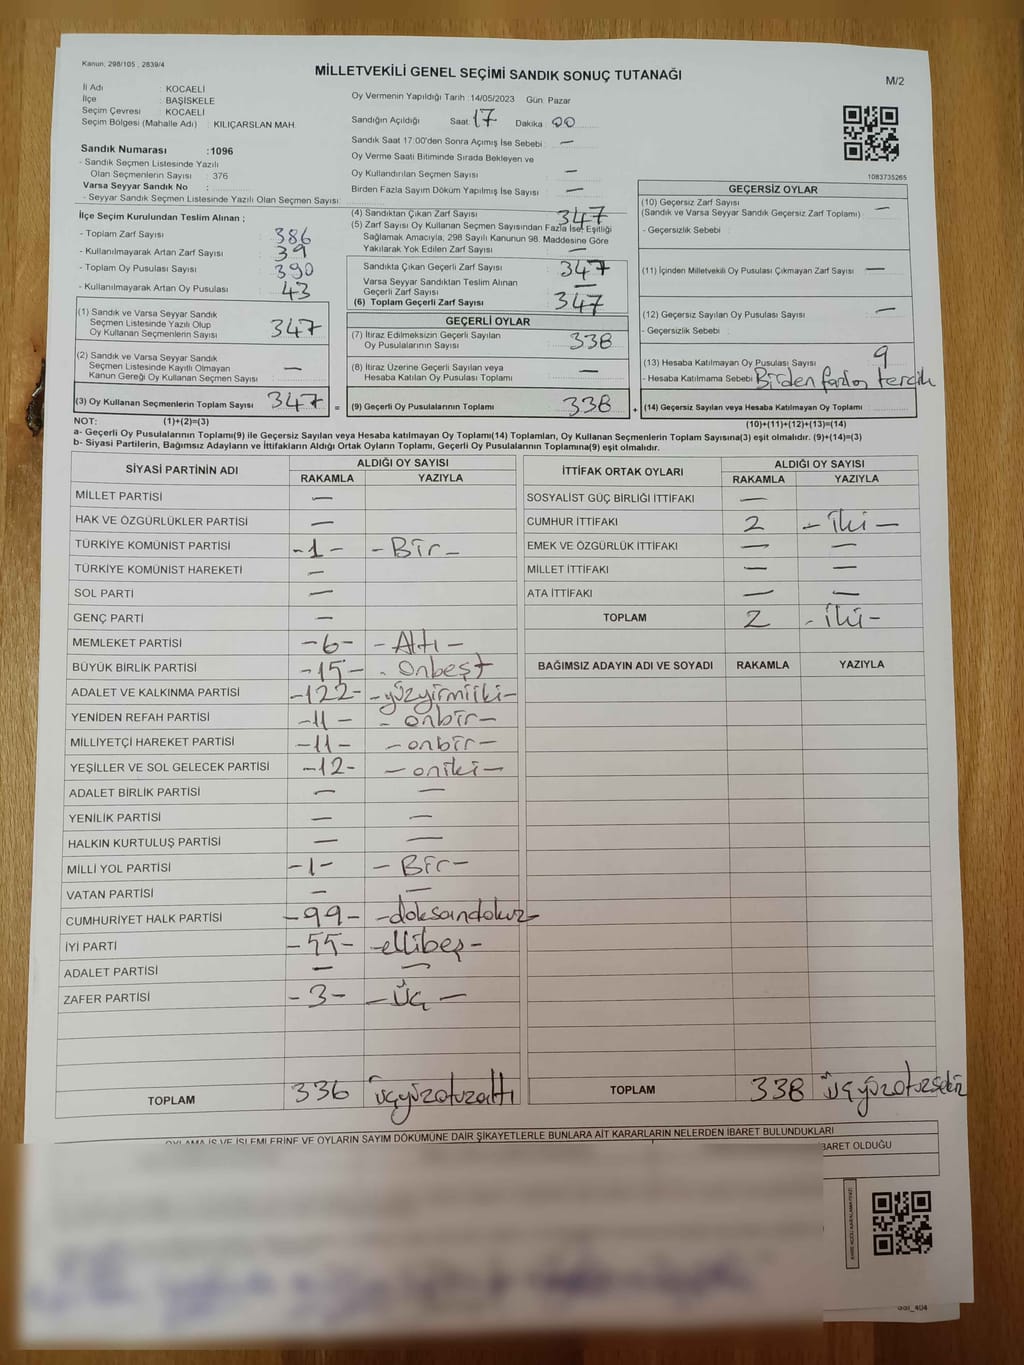 Kanun: 298/105 , 2839/4
MİLLETVEKİLİ GENEL SEÇİMİ SANDIK SONUÇ TUTANAĞI
M/2
İl Adı : KOCAELİ
İlçe : BAŞİSKELE
Seçim Çevresi : KOCAELİ
Seçim Bölgesi (Mahalle Adı) : KILIÇARSLAN MAH.
Oy Vermenin Yapıldığı Tarih :14/05/2023 Gün: Pazar
Sandığın Açıldığı Saat: 17 Dakika 00
Sandık Saat 17:00'den Sonra Açımış İse Sebebi : —
Oy Verme Saati Bitiminde Sırada Bekleyen ve
Oy Kullandırılan Seçmen Sayısı : —
Birden Fazla Sayım Döküm Yapılmış İse Sayısı : —
1083735265
Sandık Numarası :1096
- Sandık Seçmen Listesinde Yazılı
Olan Seçmenlerin Sayısı : 376
Varsa Seyyar Sandık No :
- Seyyar Sandık Seçmen Listesinde Yazılı Olan Seçmen Sayısı:
İlçe Seçim Kurulundan Teslim Alınan ;
- Toplam Zarf Sayısı : 386
- Kullanılmayarak Artan Zarf Sayısı : 39
- Toplam Oy Pusulası Sayısı : 390
- Kullanılmayarak Artan Oy Pusulası : 43
(1) Sandık ve Varsa Seyyar Sandık
Seçmen Listesinde Yazılı Olup
Oy Kullanan Seçmenlerin Sayısı : 347
(2) Sandık ve Varsa Seyyar Sandık
Seçmen Listesinde Kayıtlı Olmayan
Kanun Gereği Oy Kullanan Seçmen Sayısı : —
(3) Oy Kullanan Seçmenlerin Toplam Sayısı : 347
(4) Sandıktan Çıkan Zarf Sayısı : 347
(5) Zarf Sayısı Oy Kullanan Seçmen Sayısından Fazla İse, Eşitliği
Sağlamak Amacıyla, 298 Sayılı Kanunun 98. Maddesine Göre
Yakılarak Yok Edilen Zarf Sayısı : —
Sandıkta Çıkan Geçerli Zarf Sayısı : 347
Varsa Seyyar Sandıktan Teslim Alınan
Geçerli Zarf Sayısı : —
(6) Toplam Geçerli Zarf Sayısı : 347
GEÇERLİ OYLAR
(7) İtiraz Edilmeksizin Geçerli Sayılan
Oy Pusulalarının Sayısı : 338
(8) İtiraz Üzerine Geçerli Sayılan veya
Hesaba Katılan Oy Pusulası Toplamı : —
= (9) Geçerli Oy Pusulalarının Toplamı : 338 +
GEÇERSİZ OYLAR
(10) Geçersiz Zarf Sayısı : —
(Sandık ve Varsa Seyyar Sandık Geçersiz Zarf Toplamı)
- Geçersizlik Sebebi :
(11) İçinden Milletvekili Oy Pusulası Çıkmayan Zarf Sayısı : —
(12) Geçersiz Sayılan Oy Pusulası Sayısı : —
- Geçersizlik Sebebi :
(13) Hesaba Katılmayan Oy Pusulası Sayısı : 9
- Hesaba Katılmama Sebebi : Birden fazla tercih
(14) Geçersiz Sayılan veya Hesaba Katılmayan Oy Toplamı :
NOT: (1)+(2)=(3)
(10)+(11)+(12)+(13)=(14)
a- Geçerli Oy Pusulalarının Toplamı(9) ile Geçersiz Sayılan veya Hesaba katılmayan Oy Toplamı(14) Toplamları, Oy Kullanan Seçmenlerin Toplam Sayısına(3) eşit olmalıdır. (9)+(14)=(3)
b- Siyasi Partilerin, Bağımsız Adayların ve İttifakların Aldığı Ortak Oyların Toplamı, Geçerli Oy Pusulalarının Toplamına(9) eşit olmalıdır.
SİYASİ PARTİNİN ADI ALDIĞI OY SAYISI
RAKAMLA YAZIYLA
MİLLET PARTİSİ —
HAK VE ÖZGÜRLÜKLER PARTİSİ —
TÜRKİYE KOMÜNİST PARTİSİ -1- -Bir-
TÜRKİYE KOMÜNİST HAREKETİ —
SOL PARTİ —
GENÇ PARTİ —
MEMLEKET PARTİSİ -6- -Altı-
BÜYÜK BİRLİK PARTİSİ -15- -Onbeşt
ADALET VE KALKINMA PARTİSİ -122- -yüzyirmiiki-
YENİDEN REFAH PARTİSİ -11- -onbir-
MİLLİYETÇİ HAREKET PARTİSİ -11- -onbir-
YEŞİLLER VE SOL GELECEK PARTİSİ -12- -oniki-
ADALET BİRLİK PARTİSİ — —
YENİLİK PARTİSİ — —
HALKIN KURTULUŞ PARTİSİ — —
MİLLİ YOL PARTİSİ -1- -Bir-
VATAN PARTİSİ — —
CUMHURİYET HALK PARTİSİ -99- -doksandokuz-
İYİ PARTİ -55- -ellibeş-
ADALET PARTİSİ — —
ZAFER PARTİSİ -3- -üç-
TOPLAM 336 üçyüzotuzaltı
İTTİFAK ORTAK OYLARI ALDIĞI OY SAYISI
RAKAMLA YAZIYLA
SOSYALİST GÜÇ BİRLİĞİ İTTİFAKI —
CUMHUR İTTİFAKI 2 -iki-
EMEK VE ÖZGÜRLÜK İTTİFAKI — —
MİLLET İTTİFAKI — —
ATA İTTİFAKI — —
TOPLAM 2 -iki-
BAĞIMSIZ ADAYIN ADI VE SOYADI RAKAMLA YAZIYLA
TOPLAM 338 üçyüzotuzsekiz
OYLAMA İŞ VE İŞLEMLERİNE VE OYLARIN SAYIM DÖKÜMÜNE DAİR ŞİKAYETLERLE BUNLARA AİT KARARLARIN NELERDEN İBARET BULUNDUKLARI
BARET OLDUĞU